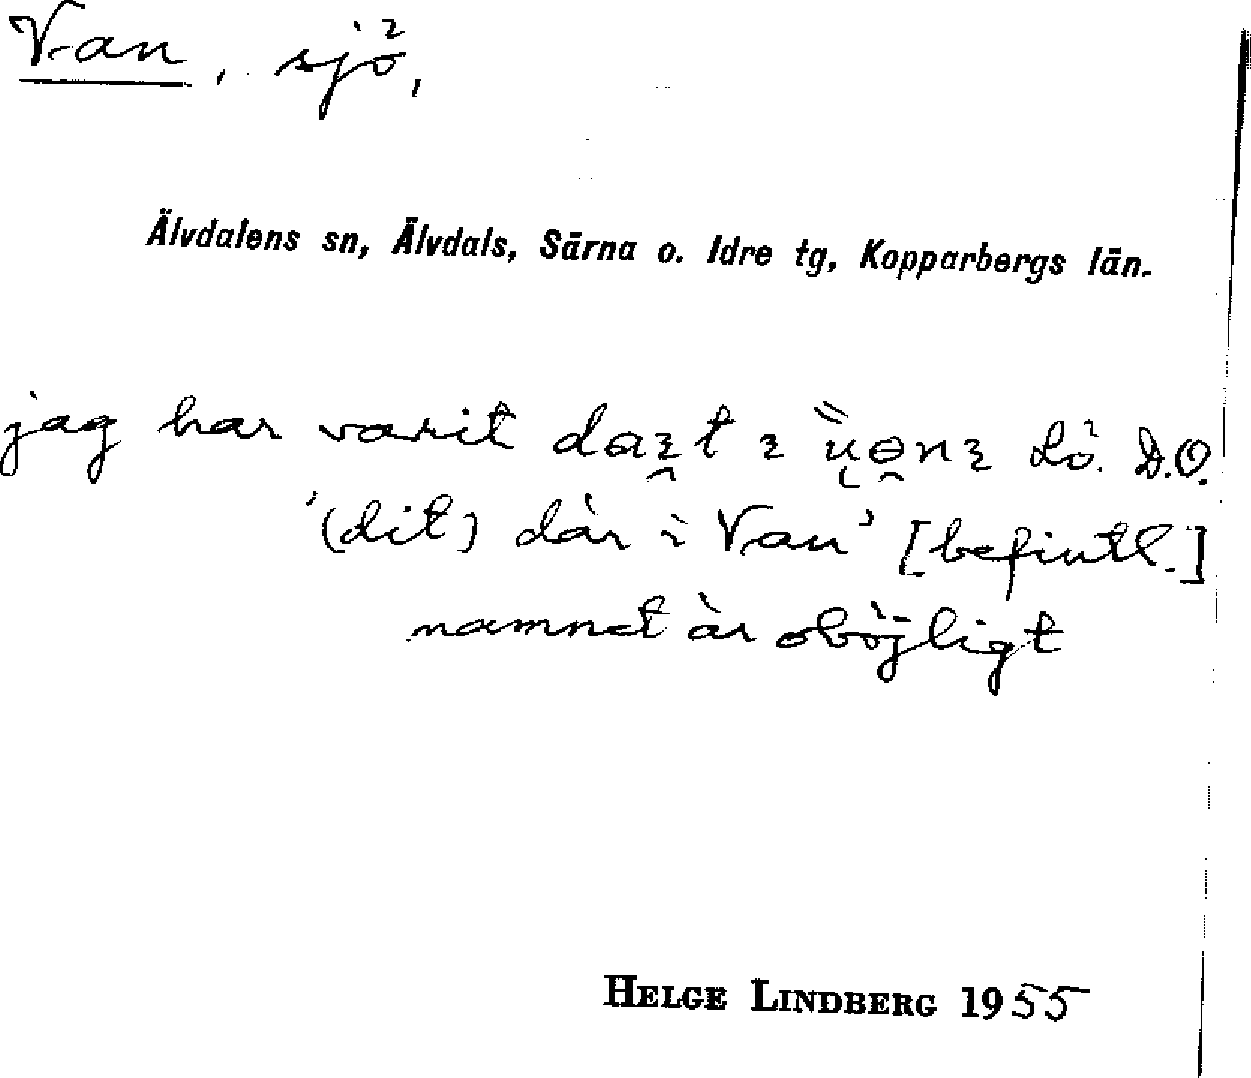 Van, sjö,
Älvdalens sn, Älvdals, Särna o. Idre tg, Kopparbergs län.
jag har varit Lö. D.O.
'(dit) där i Van' [befintl.]
namnet är oböjligt
HELGE LINDBERG 1955